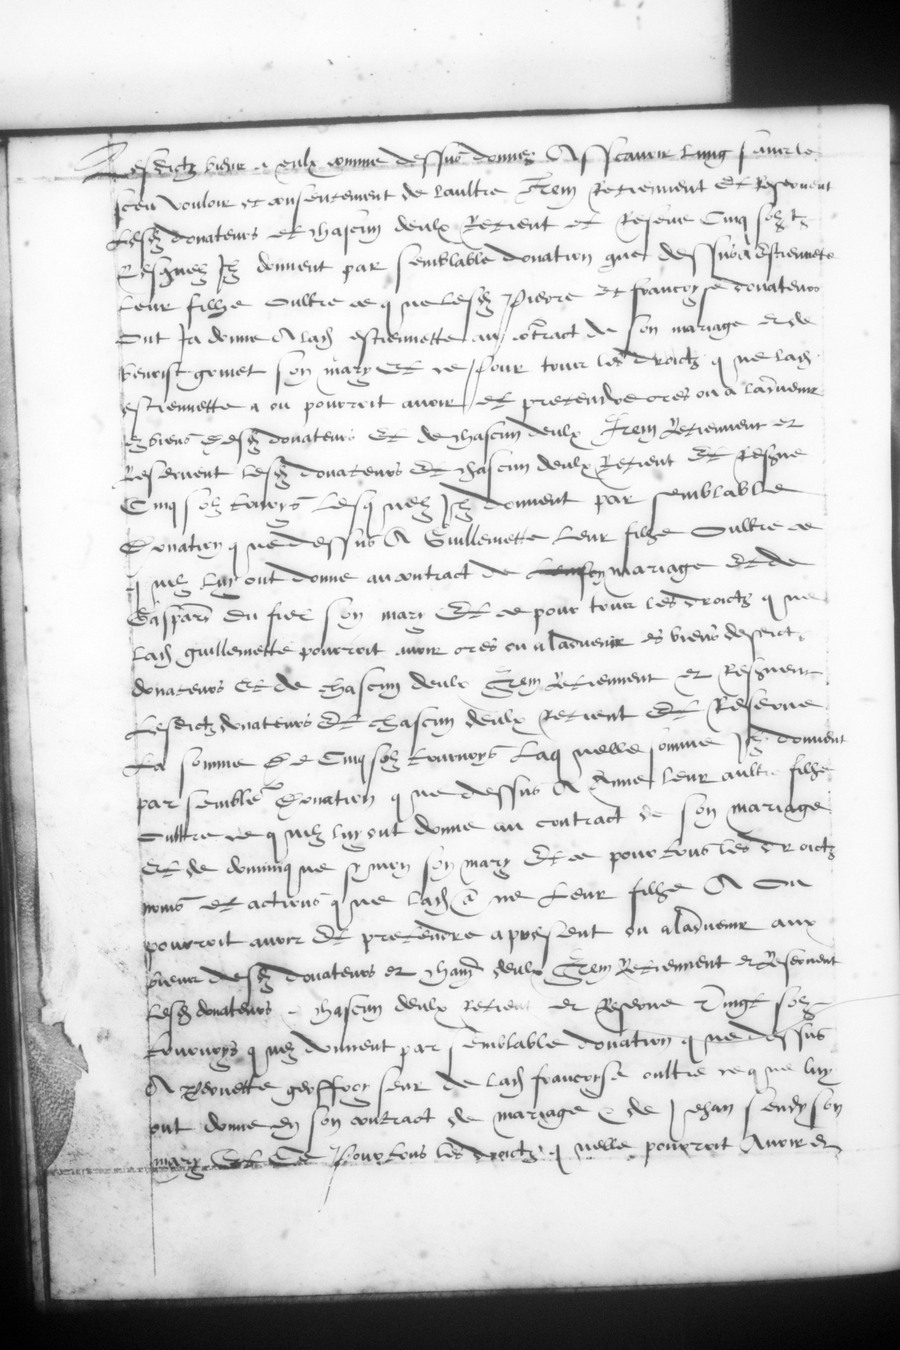 Lesdictz biens a eulx comme dessus donnez Asscavoir lung sans le
sceu vouloir et consentement de laultre Item Retiennent Et Reservent
Lesd donateurs et chascun deulx Retient et Reserve Cinq solz tz
Lesquelz Ilz donnent par semblable donation que dessus a Estiennete
Leur filhe Oultre ce que lesd Pierre Et francoyse donateurs
Ont Ja donne A lad estiennette au contract de son mariage et de
benoist gomet son mary Et ce pour tous les droictz que lad
estiennette a ou pourroit avoir et pretendre ores ou a ladvenir
es biens desd donateurs Et de chascun deulx Item Retiennent et
Reservent Lesd donateurs Et chascun deulx Retient Et reserve
Cinq solz tournoys Lesquelz Ilz donnent par semblable
Donation que dessus A Guillemette Leur filhe Oultre ce
quilz luy ont donne au contract de son mariage Et de
Gaspard du fiel son mary Et ce pour tous les droictz que
Lad guillemette pourroit avoir ores ou a ladvenir es biens desdictz
donateurs Et de chascun deulx Item Retiennent et Reservent
Lesdictz donateurs Et chascun deulx Retient Et Reserve
La somme De Cinq solz tournoys Laquelle somme Ilz donnent
par semble Donation que dessus A Anne Leur aultre filhe
Oultre ce quilz luy ont donne au contract de son mariage
Et de dominique symon son mary Et ce pour tous les droictz
noms et actions que lad Anne Leur filhe A Ou
pourroit avoir Et pretendre a present ou a ladvenir aux
biens desd donateurs et chascun deulx Item Retiennent et Reservent
Lesd donateurs et chascun deulx retient et Reserve Vingt solz
tournoys quilz donnent par semblable donation que dessus
A Pernette geoffroy seur de lad francoyse oultre ce que luy
ont donne en son contract de mariage et de Jehan son
mary Et Ce Pour tous les droictz quelle pourroit Avoir Et